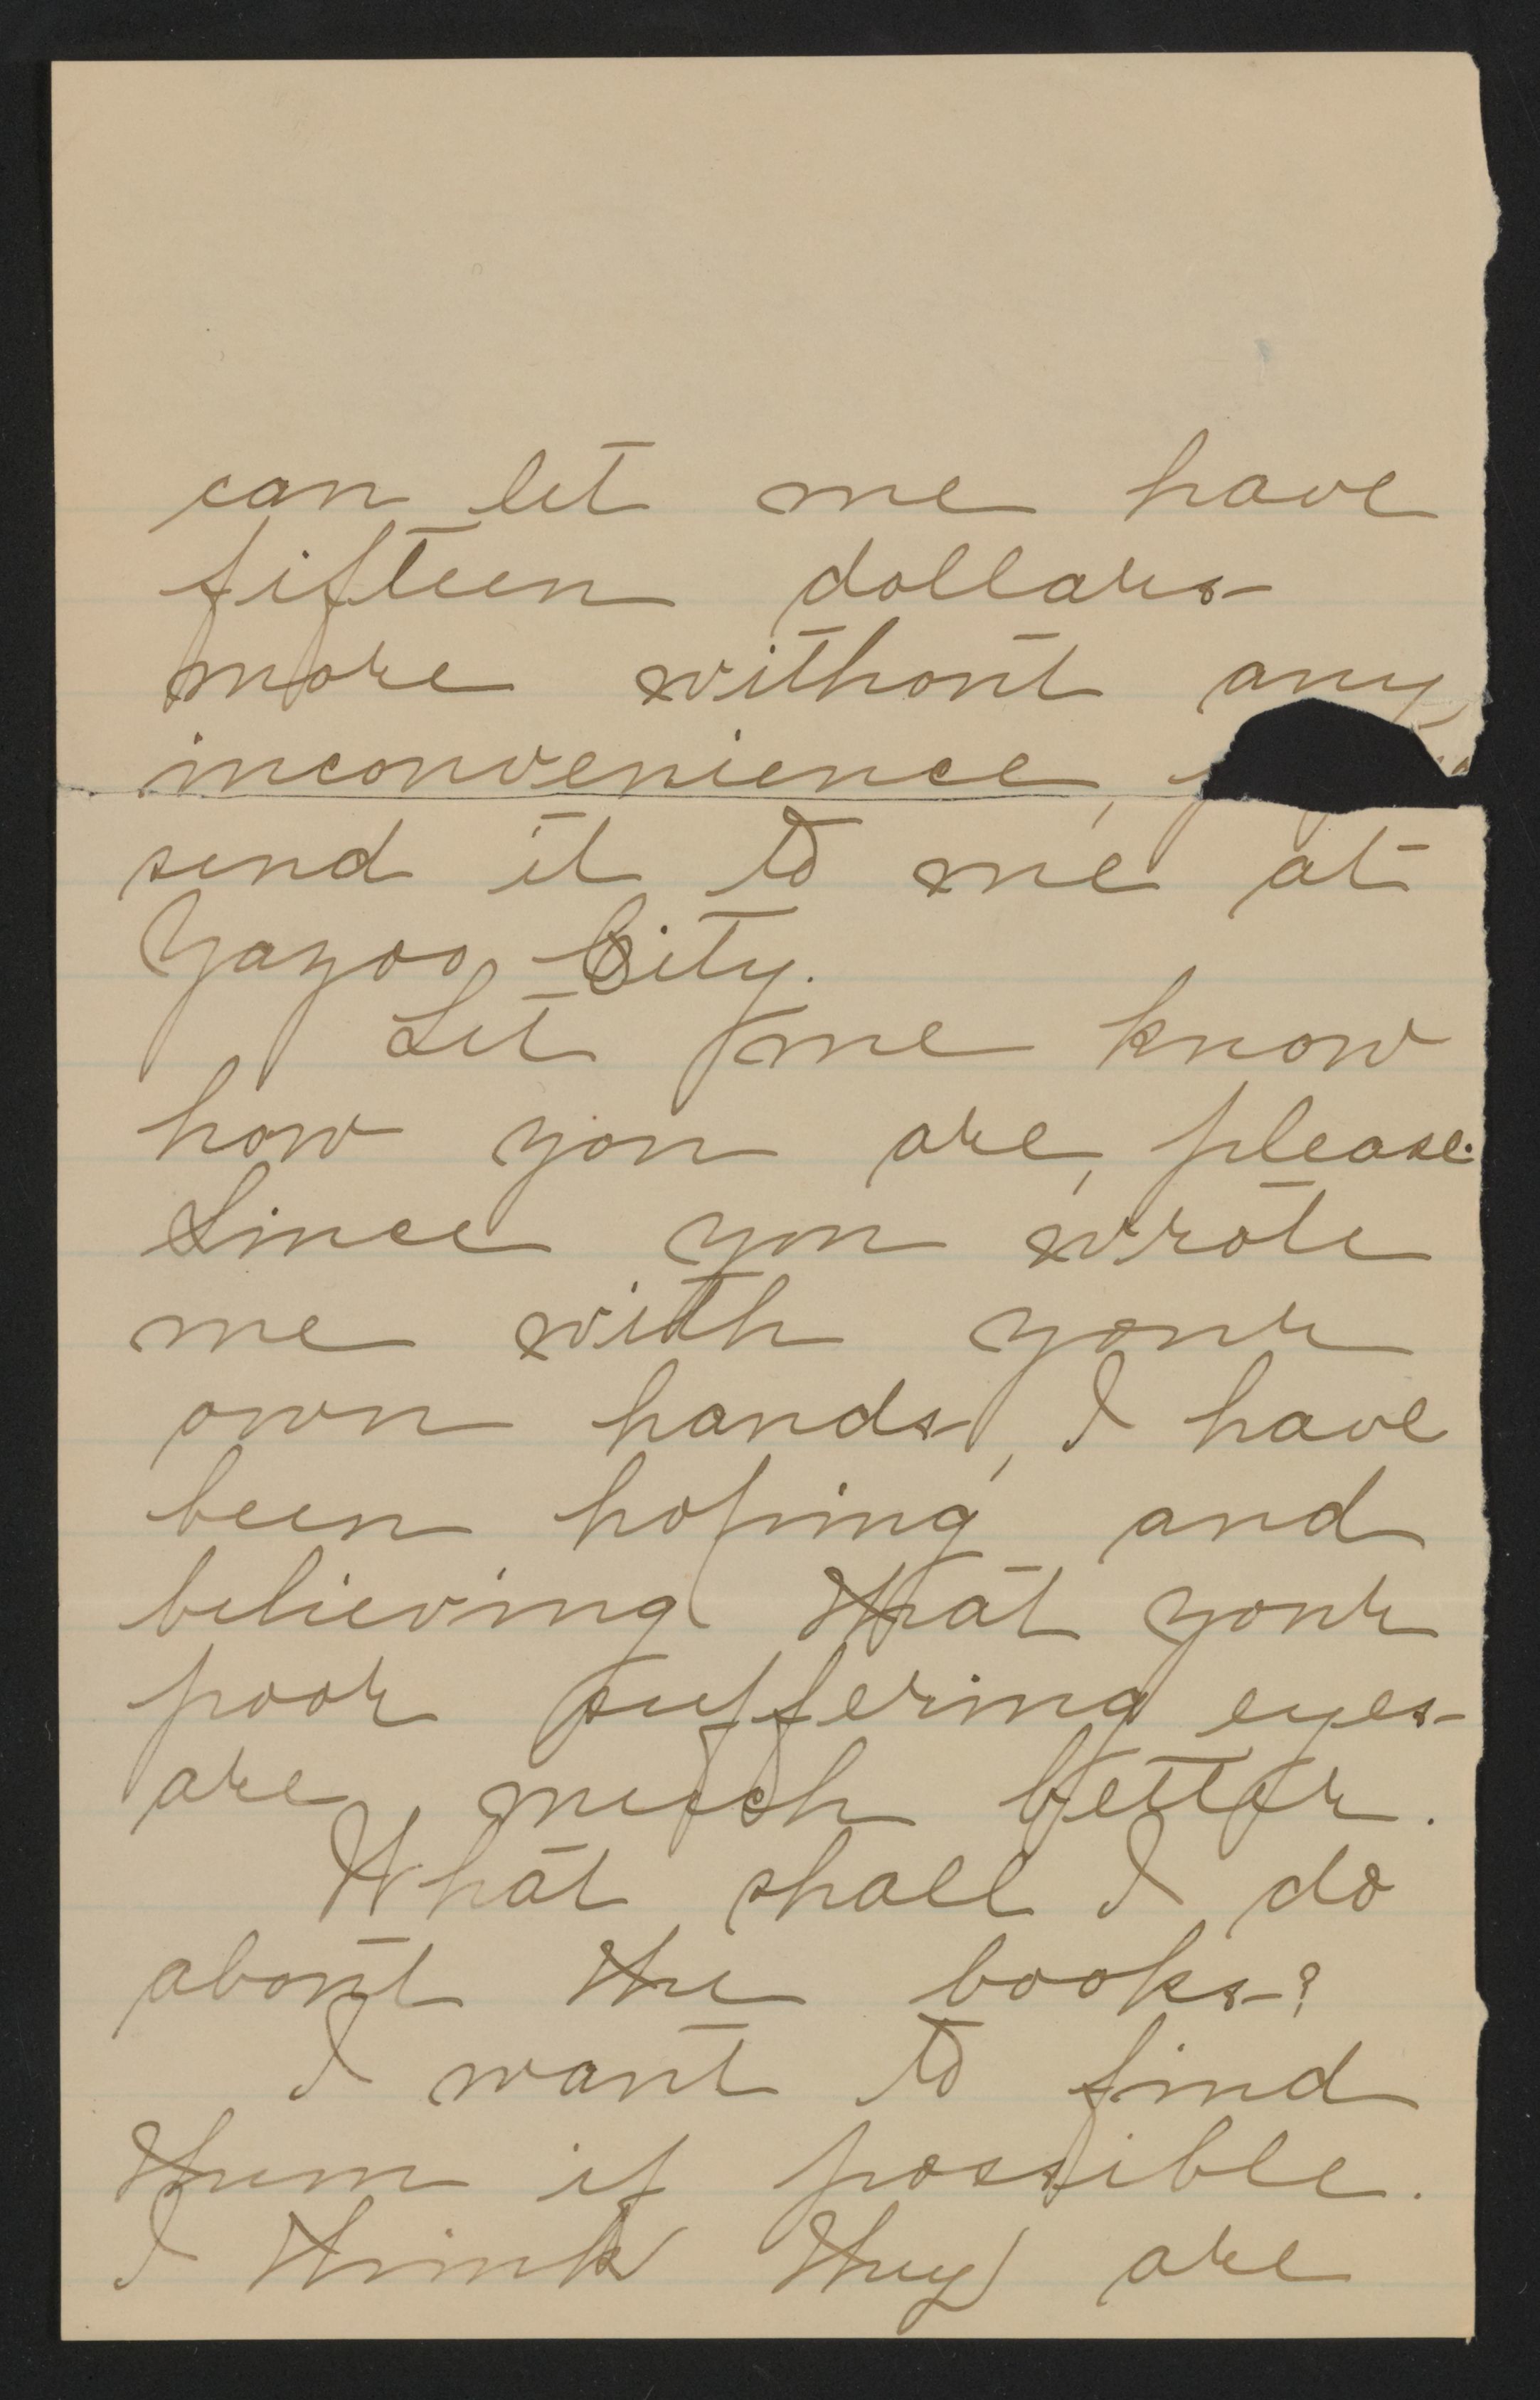 can let me have
fifteen dollars
more without any
inconvenience,
send it to me at
Yazoo City.
Let me know
how you are, please.
Since you wrote
me with your
own hands, I have
been hoping and
believing that your
poor suffering eyes
are much better.
What shall I do
about the books?
I want to find
them if possible.
I think they are